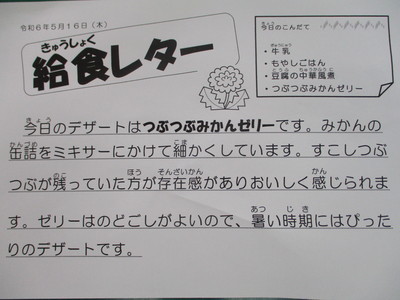 令和6年5月16日（木）
きゅうしょく
給食レター
今日のこんだて
・牛乳
・もやしごはん
・豆腐の中華風煮
・つぶつぶみかんゼリー
今日のデザートはつぶつぶみかんゼリーです。みかんの
缶詰をミキサーにかけて細かくしています。すこしつぶ
つぶが残っていた方が存在感がありおいしく感じられま
す。ゼリーはのどごしがよいので、暑い時期にはぴった
りのデザートです。